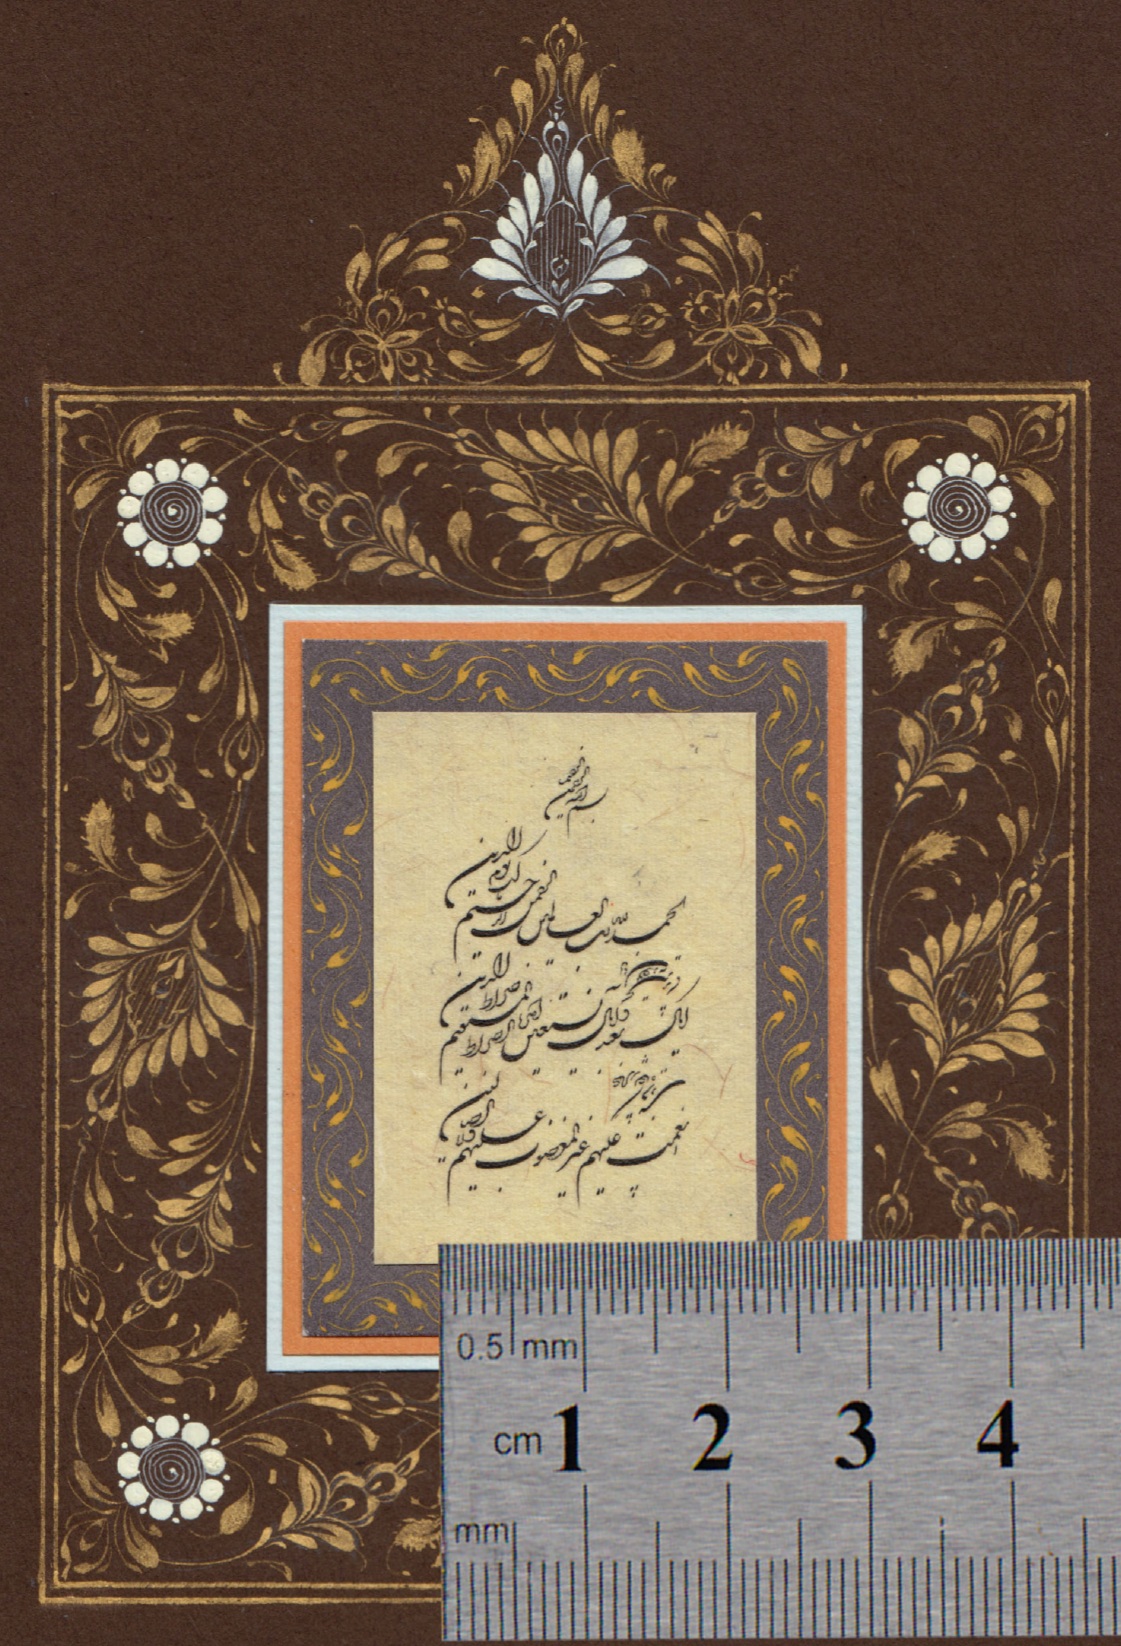 بسم الله الرحمن الرحیم
الحمد لله رب العالمین الرحمن الرحیم مالک یوم الدین
ایاک نعبد و ایاک نستعین اهدنا الصراط المستقیم صراط الذین
انعمت علیهم غیر المغضوب علیهم و لا الضالین
0.5 mm
cm 1 2 3 4
mm